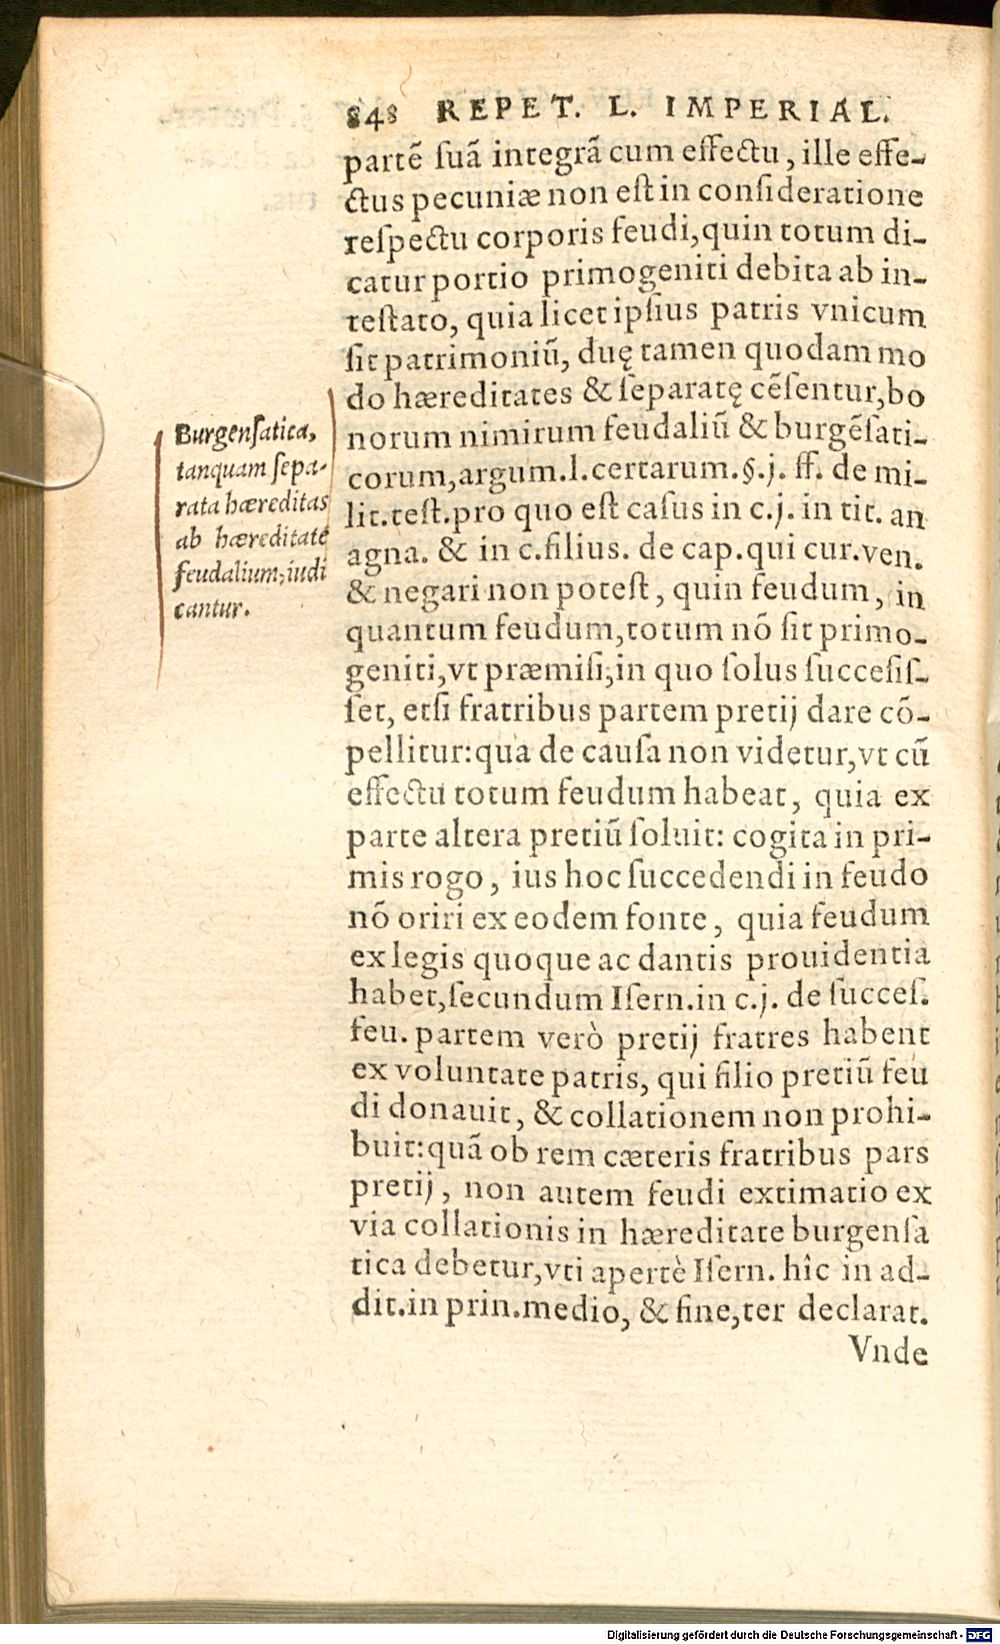 848 REPET. L. IMPERIAL.
partē ſuā integrā cum effectu, ille effe-
ctus pecuniæ non eſt in conſideratione
reſpectu corporis feudi, quin totum di-
catur portio primogeniti debita ab in-
teſtato, quia licet ipſius patris vnicum
ſit patrimoniū, duę tamen quodam mo
do hæreditates & ſeparatę cēſentur, bo
norum nimirum feudaliū & burgēſati-
corum, argum. l. certarum. §. j. ff. de mi-
lit. teſt. pro quo eſt caſus in c. j. in tit. an
agna. & in c. filius. de cap. qui cur. ven.
& negari non poteſt, quin feudum, in
quantum feudum, totum nō ſit primo-
geniti, vt præmiſi; in quo ſolus ſucceſiſ-
ſet, etſi fratribus partem pretij dare cō-
pellitur: qua de cauſa non videtur, vt cū
effectu totum feudum habeat, quia ex
parte altera pretiū ſoluit: cogita in pri-
mis rogo, ius hoc ſuccedendi in feudo
nō oriri ex eodem fonte, quia feudum
ex legis quoque ac dantis prouidentia
habet, ſecundum Iſern. in c. j. de ſucceſ.
feu. partem verò pretij fratres habent
ex voluntate patris, qui filio pretiū feu
di donauit, & collationem non prohi-
buit: quā ob rem cæteris fratribus pars
pretij, non autem feudi extimatio ex
via collationis in hæreditate burgenſa
tica debetur, vti apertè Iſern. hîc in ad-
dit. in prin. medio, & fine, ter declarat.
Vnde
Burgenſatica,
tanquam ſepa-
rata hæreditas
ab hæreditate
feudalium, iudi
cantur.
Digitalisierung gefördert durch die Deutsche Forschungsgemeinschaft - DFG